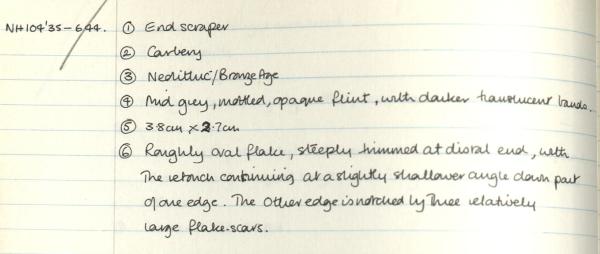 NH104'35-644. ① End scraper
② Carbery
③ Neolithic/Bronze Age
④ Mid grey, mottled, opaque flint, with darker translucent bands.
⑤ 3.8cm × 2.7cm
⑥ Roughly oval flake, steeply trimmed at distal end, with
the retouch continuing at a slightly shallower angle down part
of one edge. The other edge is notched by three relatively
large flake-scars.